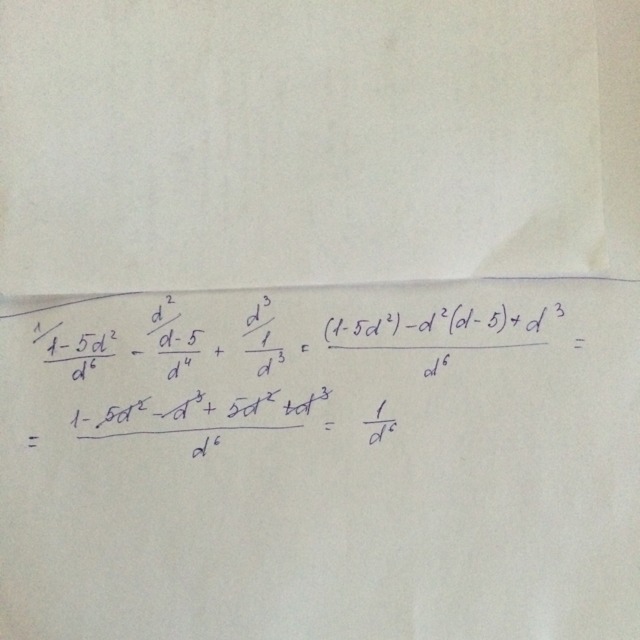 1/ d²/ d³/
(1-5d²)/d⁶ - (d-5)/d⁴ + 1/d³ = ((1-5d²)-d²(d-5)+d³)/d⁶ =
= (1-5d²-d³+5d²+d³)/d⁶ = 1/d⁶